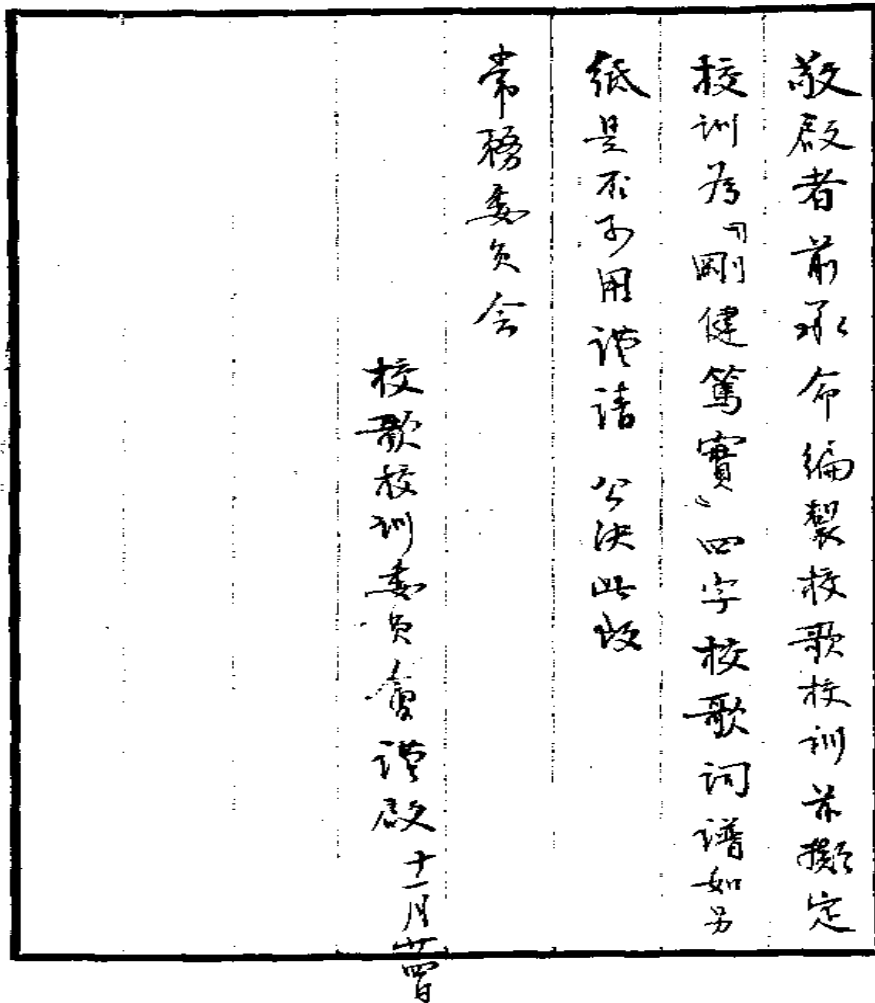 敬啟者前承命編製校歌校訓茲擬定
校訓為『剛健篤實』四字校歌詞譜如另
紙是否可用謹請 公決此致
常務委员会
校歌校训委员會謹啟 十一月廿四日